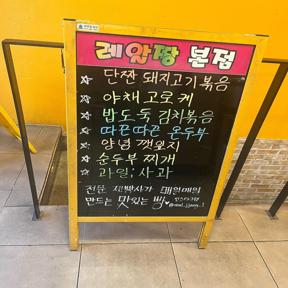 레알짱 본점
☆ 단짠 돼지고기볶음
☆ 야채고로케
☆ 밥도둑 김치볶음
☆ 따끈따끈 온두부
☆ 양념 깻잎지
☆ 순두부 찌개
☆ 과일; 사과
전문 제빵사가 매일매일
만드는 맛있는 빵